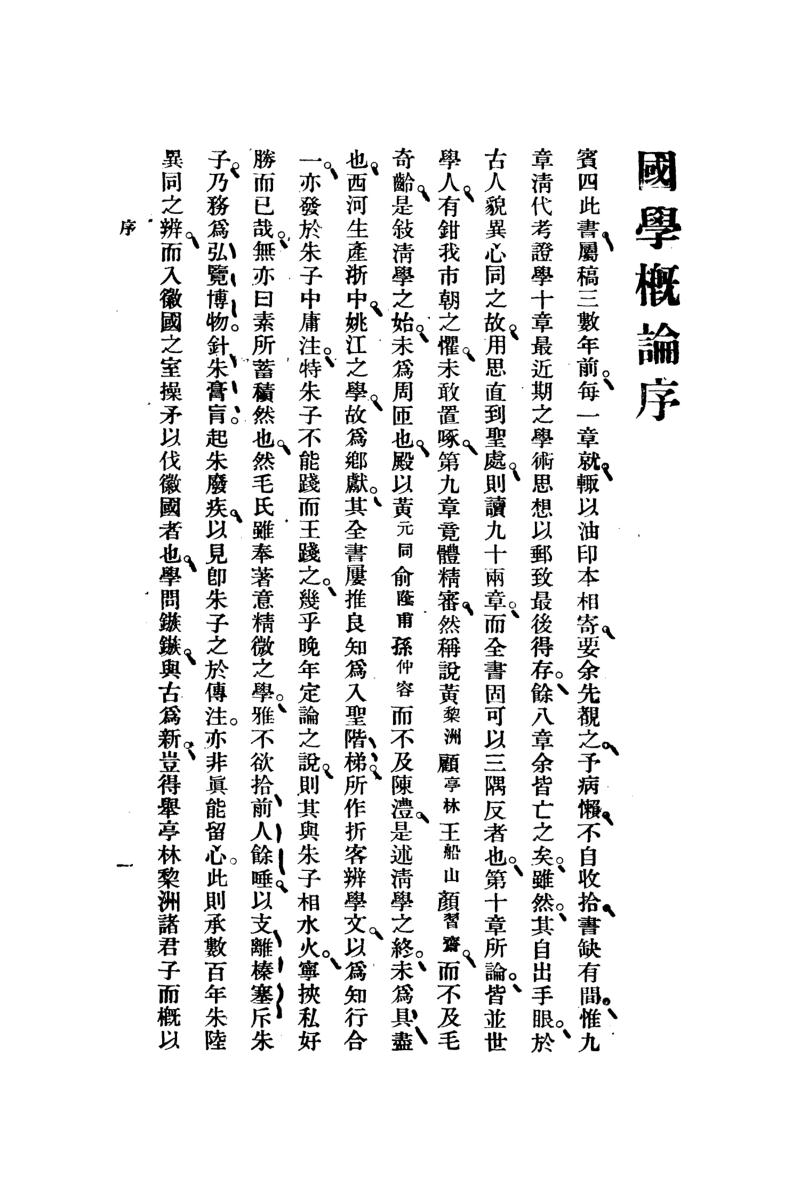 國學概論序
賓四此書屬稿三數年前。每一章就。輒以油印本相寄。要余先覩之。予病懶。不自收拾。書缺有間。惟九
章淸代考證學十章最近期之學術思想以郵致最後得存。餘八章余皆亡之矣。雖然。其自出手眼。於
古人貌異心同之故。用思直到聖處。則讀九十兩章。而全書固可以三隅反者也。第十章所論。皆並世
學人。有鉗我市朝之懼。未敢置啄。第九章竟體精審。然稱說黃黎洲顧亭林王船山顏習齋。而不及毛
奇齡。是敍淸學之始。未爲周匝也。殿以黃元同俞蔭甫孫仲容而不及陳澧。是述淸學之終。未爲具盡
也。西河生產浙中。姚江之學。故爲鄉獻。其全書屢推良知爲入聖階梯。所作折客辨學文。以爲知行合
一。亦發於朱子中庸注。特朱子不能踐而王踐之。幾乎晚年定論之說。則其與朱子相水火。寧挾私好
勝而已哉。無亦曰素所蓄積然也。然毛氏雖奉著意精微之學。雅不欲拾前人餘唾。以支離榛塞斥朱
子。乃務爲弘覽博物。針朱膏肓。起朱廢疾。以見卽朱子之於傳注。亦非眞能留心。此則承數百年朱陸
異同之辨。而入徽國之室操矛以伐徽國者也。學問鏃鏃。與古爲新。豈得舉亭林黎洲諸君子而概以
序
一